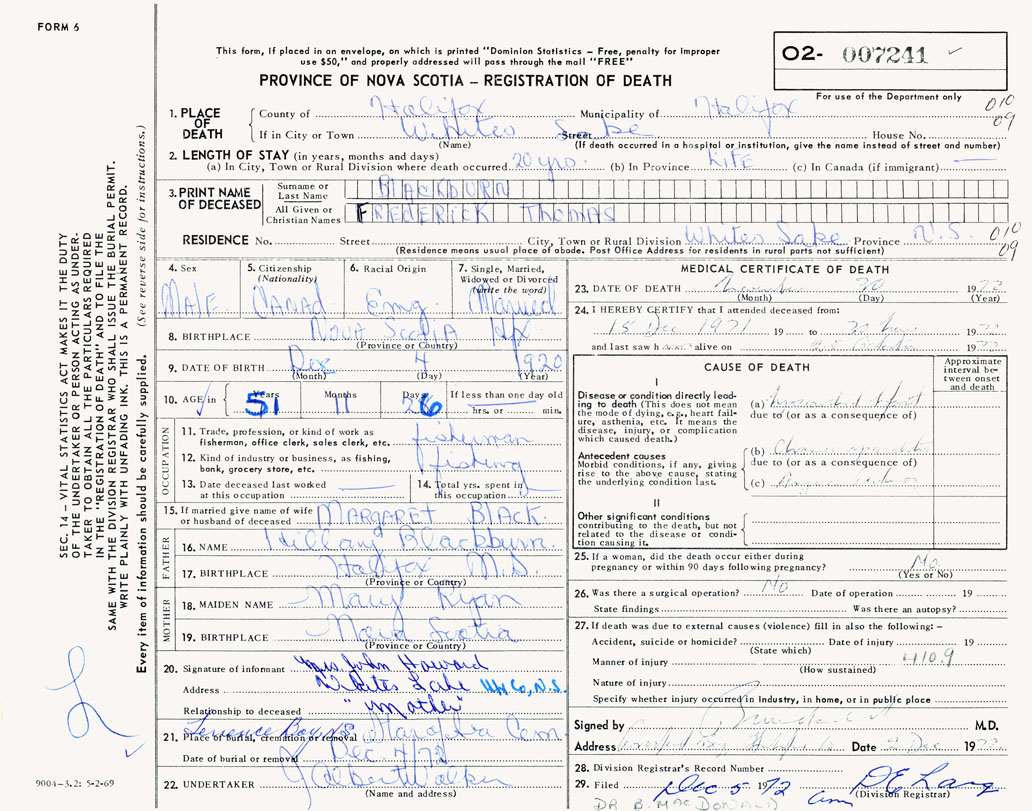 FORM 6
This form, if placed in an envelope, on which is printed "Dominion Statistics – Free, penalty for improper
use $50," and properly addressed will pass through the mail "FREE"
PROVINCE OF NOVA SCOTIA – REGISTRATION OF DEATH
O2- 007241
For use of the Department only
010
09
1. PLACE OF DEATH
County of Halifax Municipality of Halifax
If in City or Town Whites Lake Street House No.
(Name) (If death occurred in a hospital or institution, give the name instead of street and number)
2. LENGTH OF STAY (in years, months and days)
(a) In City, Town or Rural Division where death occurred 20 yrs. (b) In Province LIFE (c) In Canada (if immigrant) —
3. PRINT NAME OF DECEASED
Surname or Last Name BLACKBURN
All Given or Christian Names FREDERICK THOMAS
RESIDENCE No. Street City, Town or Rural Division Whites Lake Province N.S.
010
09
(Residence means usual place of abode. Post Office Address for residents in rural parts not sufficient)
4. Sex MALE
5. Citizenship (Nationality) CANAD
6. Racial Origin Eng
7. Single, Married, Widowed or Divorced (write the word) Married
8. BIRTHPLACE NOVA SCOTIA Hfx
(Province or Country)
9. DATE OF BIRTH Dec 4 1920
(Month) (Day) (Year)
10. AGE in Years 51 Months 11 Days 26 If less than one day old hrs. or min.
OCCUPATION
11. Trade, profession, or kind of work as
fisherman, office clerk, sales clerk, etc. fisherman
12. Kind of industry or business, as fishing,
bank, grocery store, etc. fishing
13. Date deceased last worked
at this occupation —
14. Total yrs. spent in
this occupation
15. If married give name of wife
or husband of deceased MARGARET BLACK
FATHER
16. NAME Hillary Blackburn
17. BIRTHPLACE Halifax N.S.
(Province or Country)
MOTHER
18. MAIDEN NAME Mary Ryan
19. BIRTHPLACE Nova Scotia
(Province or Country)
20. Signature of informant Mrs John Howard
Address Whites Lake Hfx Co, N.S.
Relationship to deceased "Mother"
21. Place of burial, cremation or removal Terence Bay, N.S. Star of the Sea Cem
Date of burial or removal Dec 4/72
22. UNDERTAKER J Albert Walker
(Name and address)
MEDICAL CERTIFICATE OF DEATH
23. DATE OF DEATH November 30 1972
(Month) (Day) (Year)
24. I HEREBY CERTIFY that I attended deceased from:
15 Dec 1971 19 to 30 Nov 1972
and last saw h alive on 25 October 1972
CAUSE OF DEATH
Approximate interval between onset and death
I
Disease or condition directly leading to death (This does not mean the mode of dying, e.g., heart failure, asthenia, etc. It means the disease, injury, or complication which caused death.)
(a) Myocardial Infarct
due to (or as a consequence of)
Antecedent causes
Morbid conditions, if any, giving rise to the above cause, stating the underlying condition last.
(b)
due to (or as a consequence of)
(c)
II
Other significant conditions contributing to the death, but not related to the disease or condition causing it.
25. If a woman, did the death occur either during
pregnancy or within 90 days following pregnancy? No
(Yes or No)
26. Was there a surgical operation? No Date of operation 19
State findings Was there an autopsy?
27. If death was due to external causes (violence) fill in also the following: –
Accident, suicide or homicide? Date of injury 19
(State which)
Manner of injury 410.9
(How sustained)
Nature of injury
Specify whether injury occurred in industry, in home, or in public place
Signed by M.D.
Address Date 2 Dec 1972
28. Division Registrar's Record Number
29. Filed Dec 5 1972 D E Lang
(Division Registrar)
DR B. MACDONALD
SEC. 14 – VITAL STATISTICS ACT MAKES IT THE DUTY
OF THE UNDERTAKER OR PERSON ACTING AS UNDER-
TAKER TO OBTAIN ALL THE PARTICULARS REQUIRED
IN THE "REGISTRATION OF DEATH" AND TO FILE THE
SAME WITH THE DIVISION REGISTRAR WHO SHALL ISSUE THE BURIAL PERMIT.
WRITE PLAINLY WITH UNFADING INK. THIS IS A PERMANENT RECORD.
Every item of information should be carefully supplied. (See reverse side for instructions.)
9004–3.2: 5-2-69